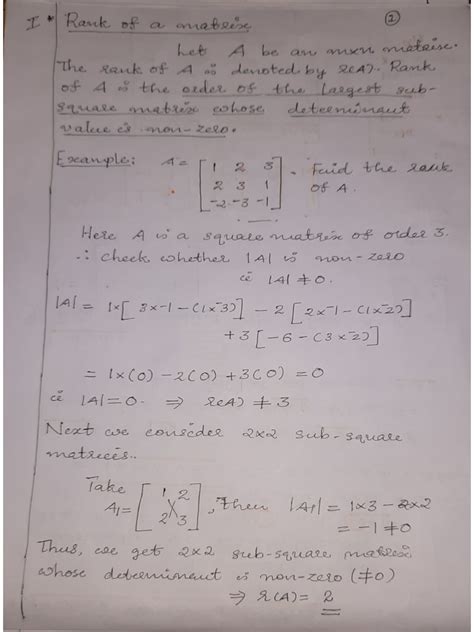 I * Rank of a matrix (2)
Let A be an mxn matrix.
The rank of A is denoted by r(A). Rank
of A is the order of the largest sub-
square matrix whose determinant
value is non-zero.
Example: A = [1 2 3; 2 3 1; -2 -3 -1]. Find the rank
of A.
Here A is a square matrix of order 3.
∴ check whether |A| is non-zero
ie |A| ≠ 0.
|A| = 1x[3x-1 - (1x-3)] - 2[2x-1 - (1x-2)]
+3[-6 - (3x-2)]
= 1x(0) - 2(0) + 3(0) = 0
ie |A| = 0. ⇒ r(A) ≠ 3
Next we consider 2x2 sub-square
matrices..
Take
A₁ = [1 2; 2 3], then |A₁| = 1x3 - 2x2
= -1 ≠ 0
Thus, we get 2x2 sub-square matrix
whose determinant is non-zero (≠0)
⇒ r(A) = 2